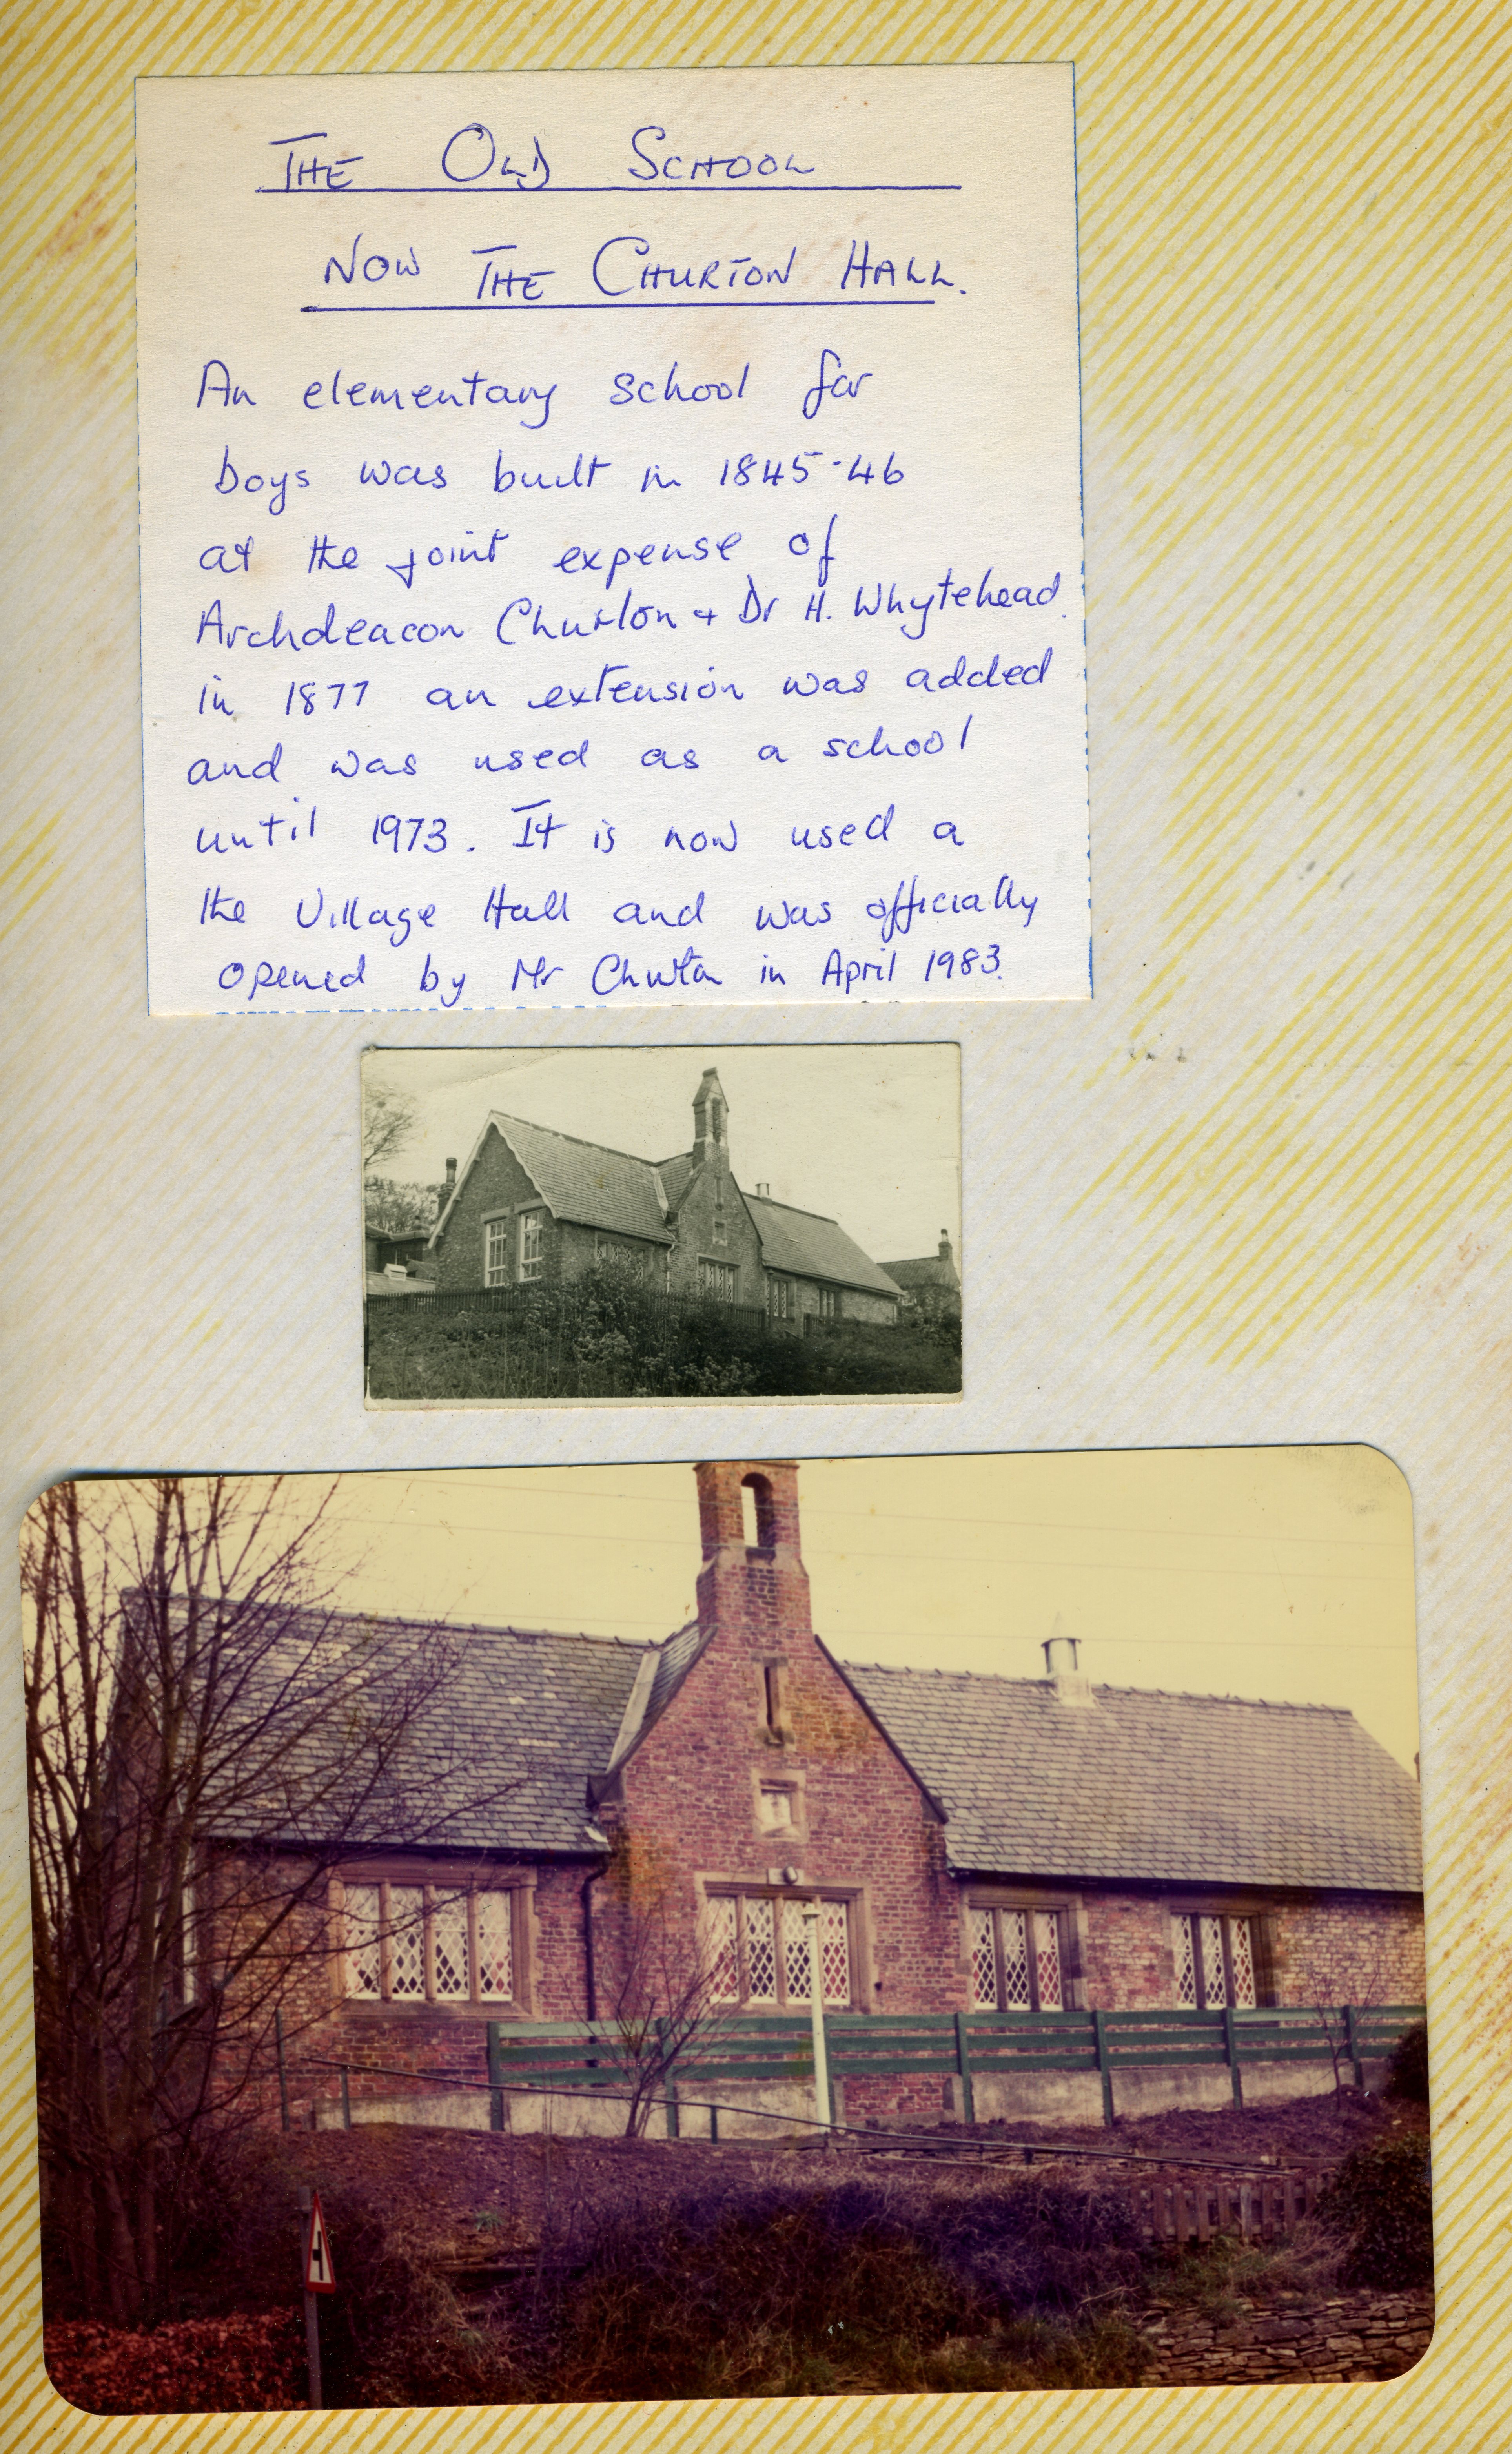 THE OLD SCHOOL
NOW THE CHURTON HALL.
An elementary school for
boys was built in 1845-46
at the joint expense of
Archdeacon Churton + Dr H. Whytehead.
in 1877 an extension was added
and was used as a school
until 1973. It is now used a
the Village Hall and was officially
opened by Mr Churton in April 1983.